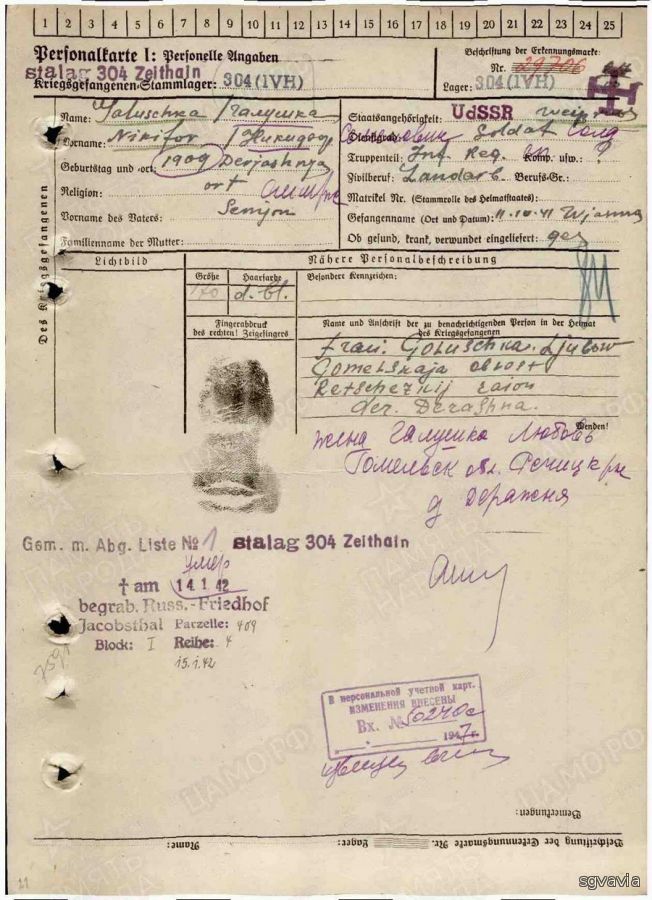 1 2 3 4 5 6 7 8 9 10 11 12 13 14 15 16 17 18 19 20 21 22 23 24 25
Personalkarte I: Personelle Angaben
stalag 304 Zeithain
Kriegsgefangenen-Stammlager: 304 (IVH)
Beschriftung der Erkennungsmarke:
Nr. 29706
Lager: 304 (IVH)
Des Kriegsgefangenen
Name: Галушка
Vorname: Nikifor
Geburtstag und -ort: 1909 Derjashnja
ort
Religion:
Vorname des Vaters: Semjon
Familienname der Mutter:
Staatsangehörigkeit: UdSSR
Dienstgrad: Soldat
Truppenteil: Inf. Reg. Komp. usw.: ?
Zivilberuf: Landarb. Berufs-Gr.:
Matrikel Nr. (Stammrolle des Heimatstaates):
Gefangennahme (Ort und Datum): 11.10.41 Wjasma
Ob gesund, krank, verwundet eingeliefert: ges
Lichtbild
Nähere Personalbeschreibung
Größe
Haarfarbe
Besondere Kennzeichen:
170
d. bl.
Fingerabdruck
des rechten! Zeigefingers
Name und Anschrift der zu benachrichtigenden Person in der Heimat
des Kriegsgefangenen
Frau: Goluschka. Ljubow
Gomelskaja oblost
Retschezkij raion
der. Derashna.
Wenden!
жена Галушко Любовь
Гомельск обл. Речицк рн
д Деражня
Gem. m. Abg. Liste № 1 stalag 304 Zeithain
умер
† am 14.1.42
begrab. Russ.-Friedhof
Jacobsthal Parzelle: 409
Block: I Reihe: 4
15.1.42
В персональной учетной карт.
ИЗМЕНЕНИЯ ВНЕСЕНЫ
Вх. № 50240с
1947г.
Bemerkungen:
Beschriftung der Erkennungsmarke Nr.
Lager:
Name:
ЦАМО РФ
sgvavia